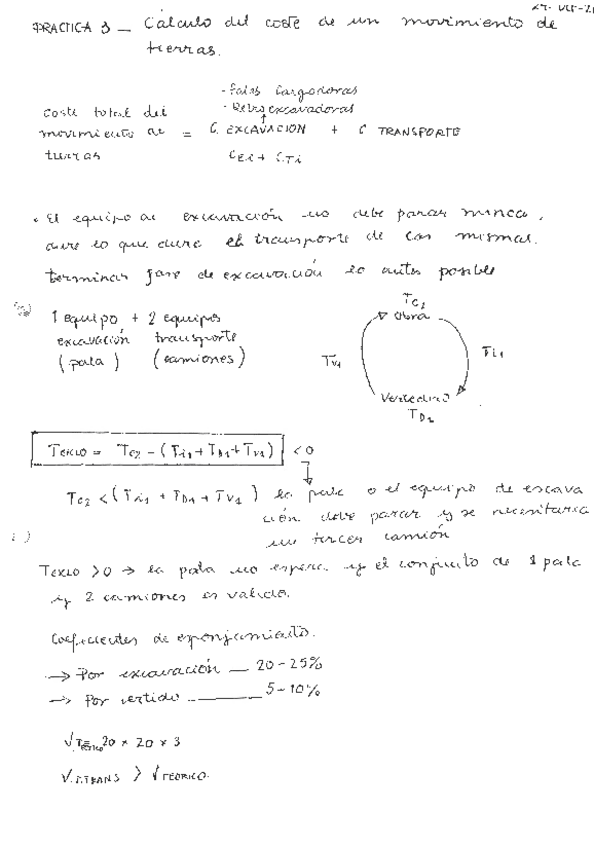 PRACTICA 3 — Cálculo del coste de un movimiento de
tierras.
· Palas Cargadoras
· Retroexcavadoras
coste total del
movimiento de = C. EXCAVACION + C TRANSPORTE
tierras
CEi + CTi
• El equipo de excavación no debe parar nunca,
dure lo que dure el transporte de las mismas.
terminar fase de excavación lo antes posible
1 equipo + 2 equipos
excavación transporte
(pala) (camiones)
TC2
Obra
TV1
Ti1
Vertedero
TD2
TCICLO = TC2 - (Ti1 + TD1 + TV1) < 0
TC2 < (Ti1 + TD1 + TV1) la pala o el equipo de excava
ción debe parar y se necesitaria
un tercer camión
TCICLO > 0 → la pala no espera y el conjunto de 1 pala
y 2 camiones es valido.
Coeficientes de esponjamiento.
→ Por excavación — 20-25%
→ Por vertido — 5-10%
VTEORICO = 20 x 20 x 3
V.T.TRANS > VTEORICO.